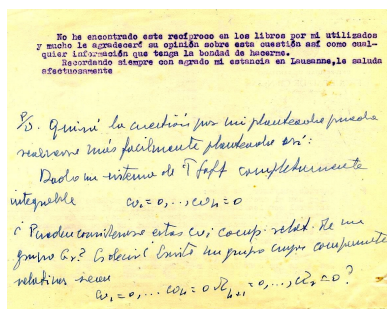 No he encontrado este recíproco en los libros por mi utilizados
y mucho le agradeceré su opinión sobre esta cuestión así como cual-
quier información que tenga la bondad de hacerme.
Recordando siempre con agrado mi estancia en Lausanne, le saluda
afectuosamente
Quizá la cuestión por mi planteada pueda
realizarse más facilmente planteada así:
Dado un sistema de Pfaff completamente
integrable ω₁=0,... ωₕ=0
¿Pueden considerarse estas ωᵢ comp. relat. de un
grupo Gᵣ? Es decir ¿Existe un grupo cuyas componentes
relativas sean
ω₁=0,... ωₕ=0